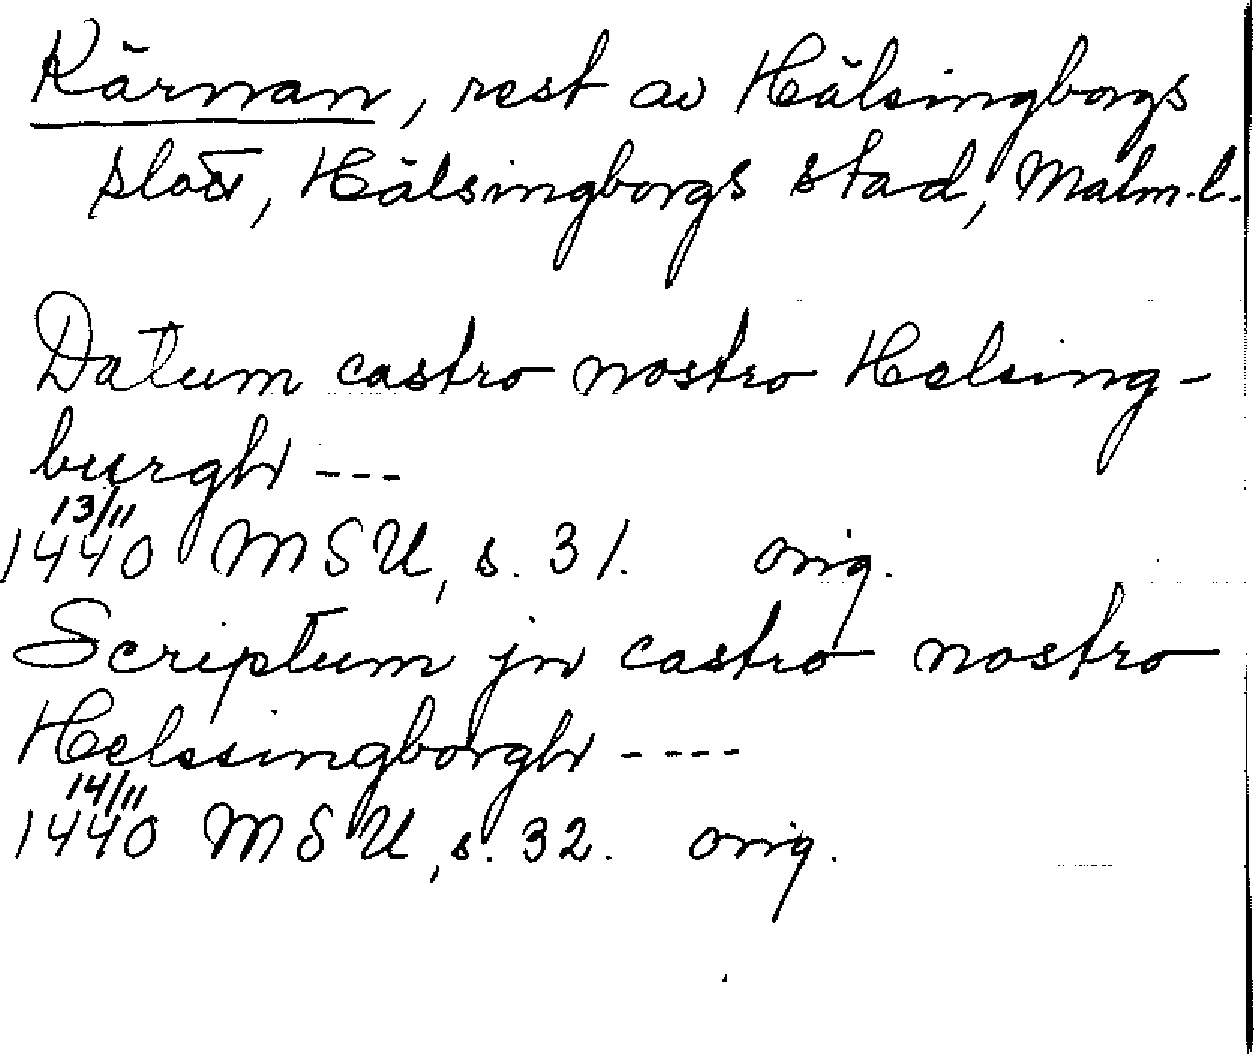 Kärnan, rest av Hälsingborgs
slott, Hälsingborgs stad, Malm.l.
Datum castro nostro Helsing-
burgh ---
13/11
1440 MSU, s. 31. orig.
Scriptum jn castro nostro
Helssingborgh ----
14/11
1440 MSU, s. 32. orig.